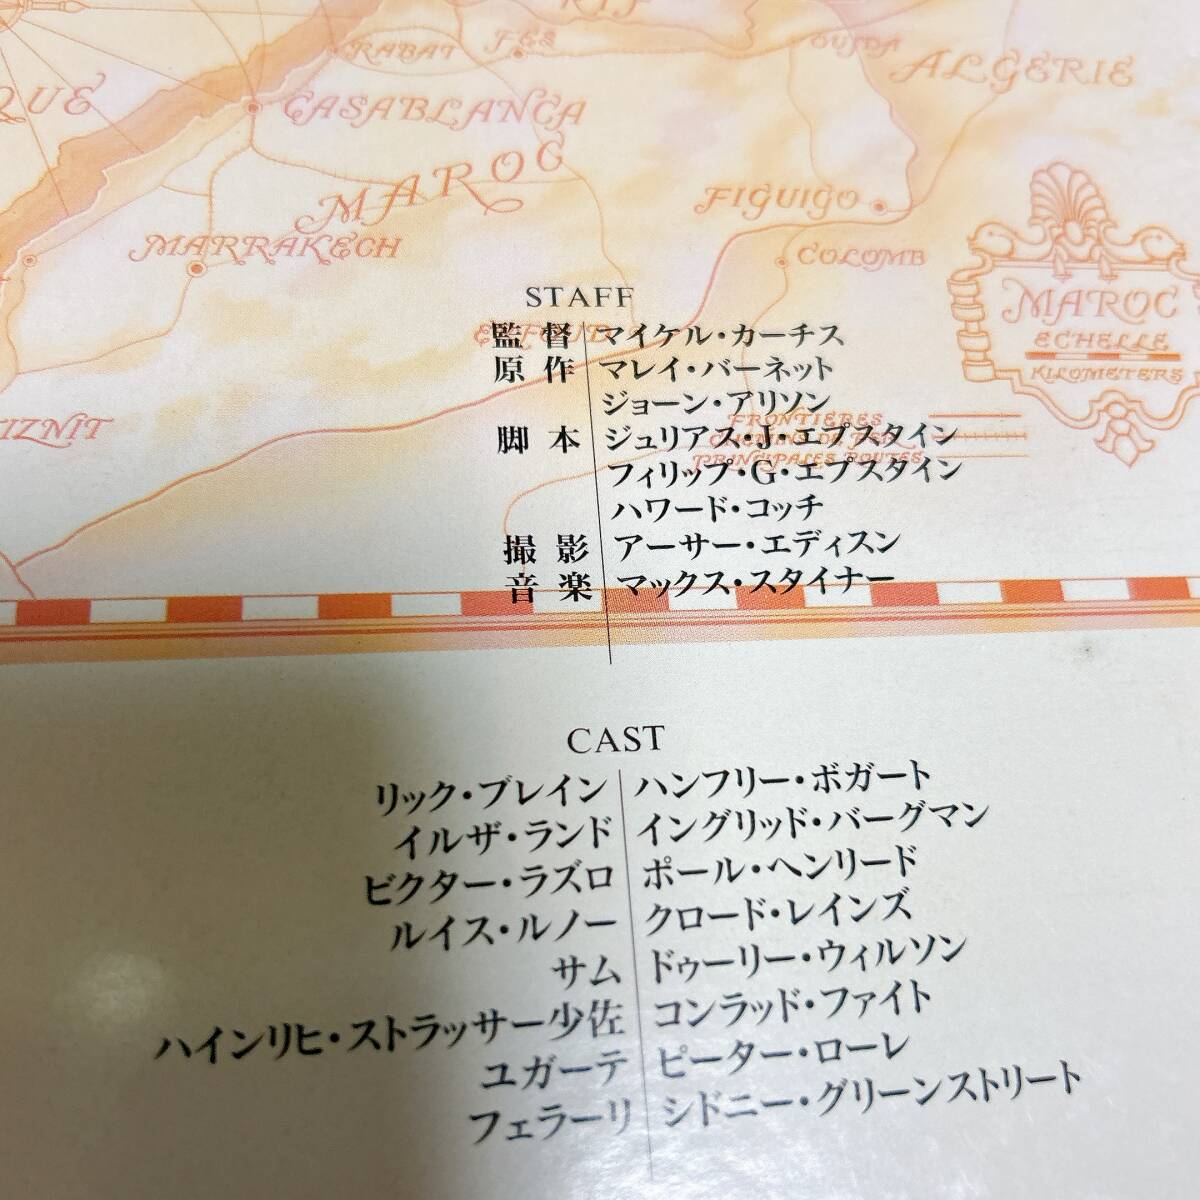 RIF
RABAT
FES
OUJDA
ALGERIE
QUE
CASABLANCA
MAROC
FIGUIGO
MARRAKECH
COLOMB
MAROC
ECHELLE
KILOMETERS
IZNIT
FRONTIERES
CHEMINS DE FER
PRINCIPALES ROUTES
STAFF
監督 マイケル・カーチス
原作 マレイ・バーネット
ジョーン・アリソン
脚本 ジュリアス・J・エプスタイン
フィリップ・G・エプスタイン
ハワード・コッチ
撮影 アーサー・エディスン
音楽 マックス・スタイナー
CAST
リック・ブレイン ハンフリー・ボガート
イルザ・ランド イングリッド・バーグマン
ビクター・ラズロ ポール・ヘンリード
ルイス・ルノー クロード・レインズ
サム ドゥーリー・ウィルソン
ハインリヒ・ストラッサー少佐 コンラッド・ファイト
ユガーテ ピーター・ローレ
フェラーリ シドニー・グリーンストリート